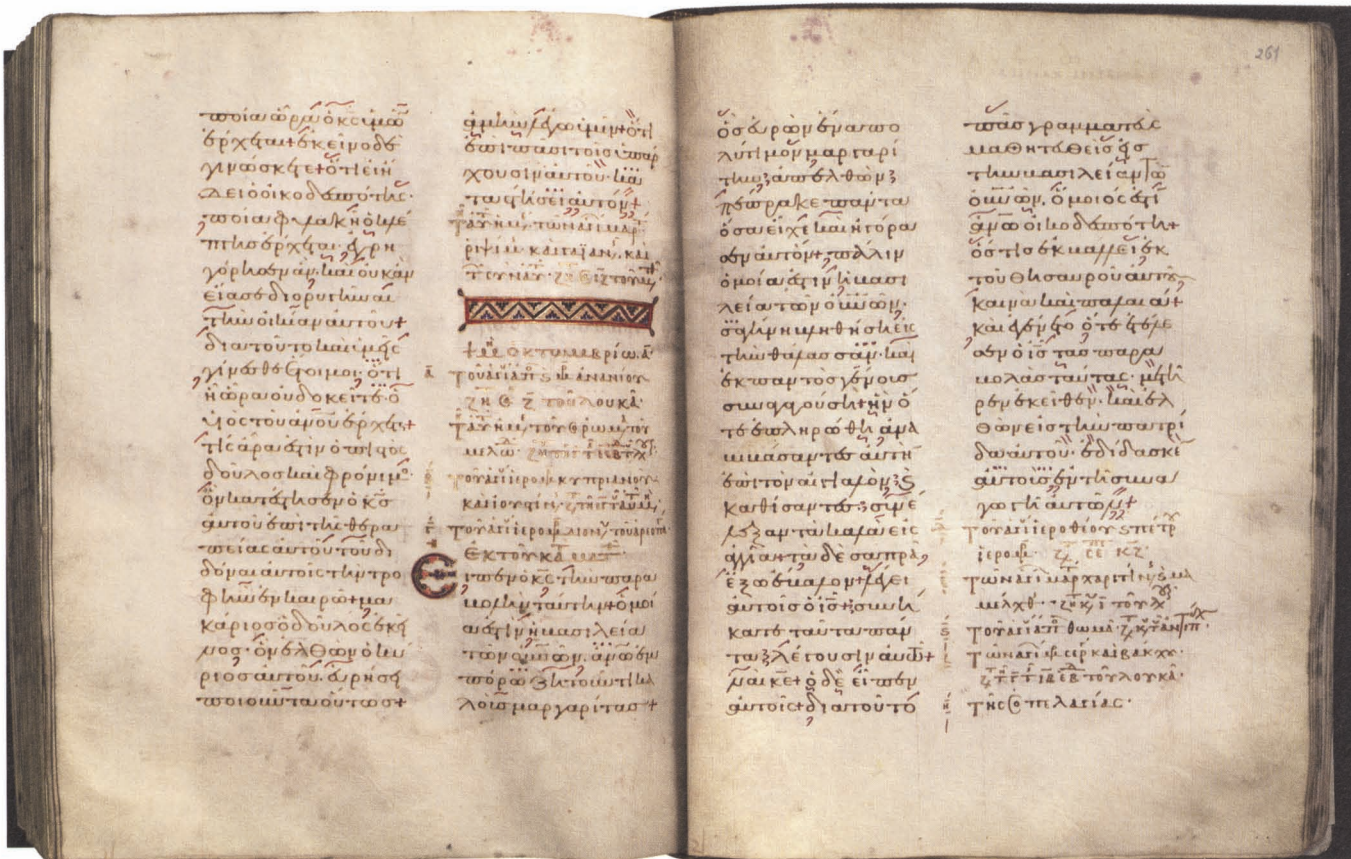 ποία ὥρα ὁ κ̅ς̅ ὑμῶν
ἔρχεται+ ἐκεῖνο δὲ
γινώσκετε+ ὅτι εἰ ᾔ
δει ὁ οἰκοδεσπότης·
ποία φυλακῇ ὁ κλέ
πτης ἔρχεται· ἐγρη
γόρησεν ἄν· καὶ οὐκ ἂν
εἴασε διορυγῆναι
τὴν οἰκίαν αὐτοῦ+
διὰ τοῦτο καὶ ὑμεῖς
γίνεσθε ἕτοιμοι· ὅτι
ᾗ ὥρα οὐ δοκεῖτε· ὁ
υἱὸς τοῦ ἀν̅ου̅ ἔρχεται+
τίς ἄρα ἐστὶν ὁ πιστὸς
δοῦλος καὶ φρόνιμος
ὃν κατέστησεν ὁ κ̅ς̅
αὐτοῦ ἐπὶ τῆς θερα
πείας αὐτοῦ τοῦ δι
δόναι αὐτοῖς τὴν τρο
φὴν ἐν καιρῷ+ μα
κάριος ὁ δοῦλος ἐκεῖ
νος· ὃν ἐλθὼν ὁ κύ
ριος αὐτοῦ εὑρήσει
ποιοῦντα οὕτως+
ἀμὴν λέγω ὑμῖν+ ὅτι
ἐπὶ πᾶσι τοῖς ὑπάρ
χουσιν αὐτοῦ· κα
ταστήσει αὐτόν+
ὀκτωμβρίω α̅
α̅ τοῦ ἁγίου ἀπ ἀνανίου
τοῦ λουκᾶ
τοῦ ἁγίου κυπριανοῦ
ἐκ τοῦ κατὰ
Εἶπεν ὁ κ̅ς̅ τὴν παρα
βολὴν ταύτην+ ὁμοί
α ἐστὶν ἡ βασιλεία
τῶν οὐν̅ῶν· ἀν̅ω̅ ἐμ
πόρω ζητοῦντι κα
λοὺς μαργαρίτας+
261
ὃς εὑρὼν ἕνα πο
λύτιμον μαργαρί
την ἀπελθὼν
πέπρακε πάντα
ὅσα εἶχε καὶ ἠγόρα
σεν αὐτόν+ πάλιν
ὁμοία ἐστὶν ἡ βασι
λεία τῶν οὐν̅ῶν·
σαγήνη βληθείση εἰς
τὴν θάλασσαν· καὶ
ἐκ παντὸς γένους
συναγαγούση+ ἣν ὅ
τε ἐπληρώθη ἀνα
βιβάσαντες αὐτὴν
ἐπὶ τὸν αἰγιαλὸν
καθίσαντες συνέ
λεξαν τὰ καλὰ εἰς
ἀγγεῖα+ τὰ δὲ σαπρὰ
ἔξω ἔβαλον+ λέγει
αὐτοῖς ὁ ι̅ς̅+ συνή
κατε ταῦτα πάν
τα λέγουσιν αὐτῶ+
ναὶ κε+ ὁ δὲ εἶπεν
αὐτοῖς+ διὰ τοῦτο
πᾶς γραμματεὺς
μαθητευθεὶς εἰς
τὴν βασιλείαν τῶν
οὐν̅ῶν· ὅμοιός ἐστιν
ἀν̅ω̅ οἰκοδεσπότη+
ὅστις ἐκβάλλει ἐκ
τοῦ θησαυροῦ αὐτοῦ
καινὰ καὶ παλαιά+
καὶ ἐγένετο ὅτε ἐτέλε
σεν ὁ ι̅ς̅ τὰς παρα
βολὰς ταύτας· μετῆ
ρεν ἐκεῖθεν· καὶ ἐλ
θὼν εἰς τὴν πατρί
δα αὐτοῦ· ἐδίδασκε
αὐτοὺς ἐν τῆ συνα
γωγῆ αὐτῶν+
τοῦ ἁγίου ἱεροθέου
τοῦ ἁγίου ἀπ θωμᾶ
τῶν ἁγίων σερ καὶ βάκχου
τοῦ λουκᾶ·
τῆς πελαγίας·